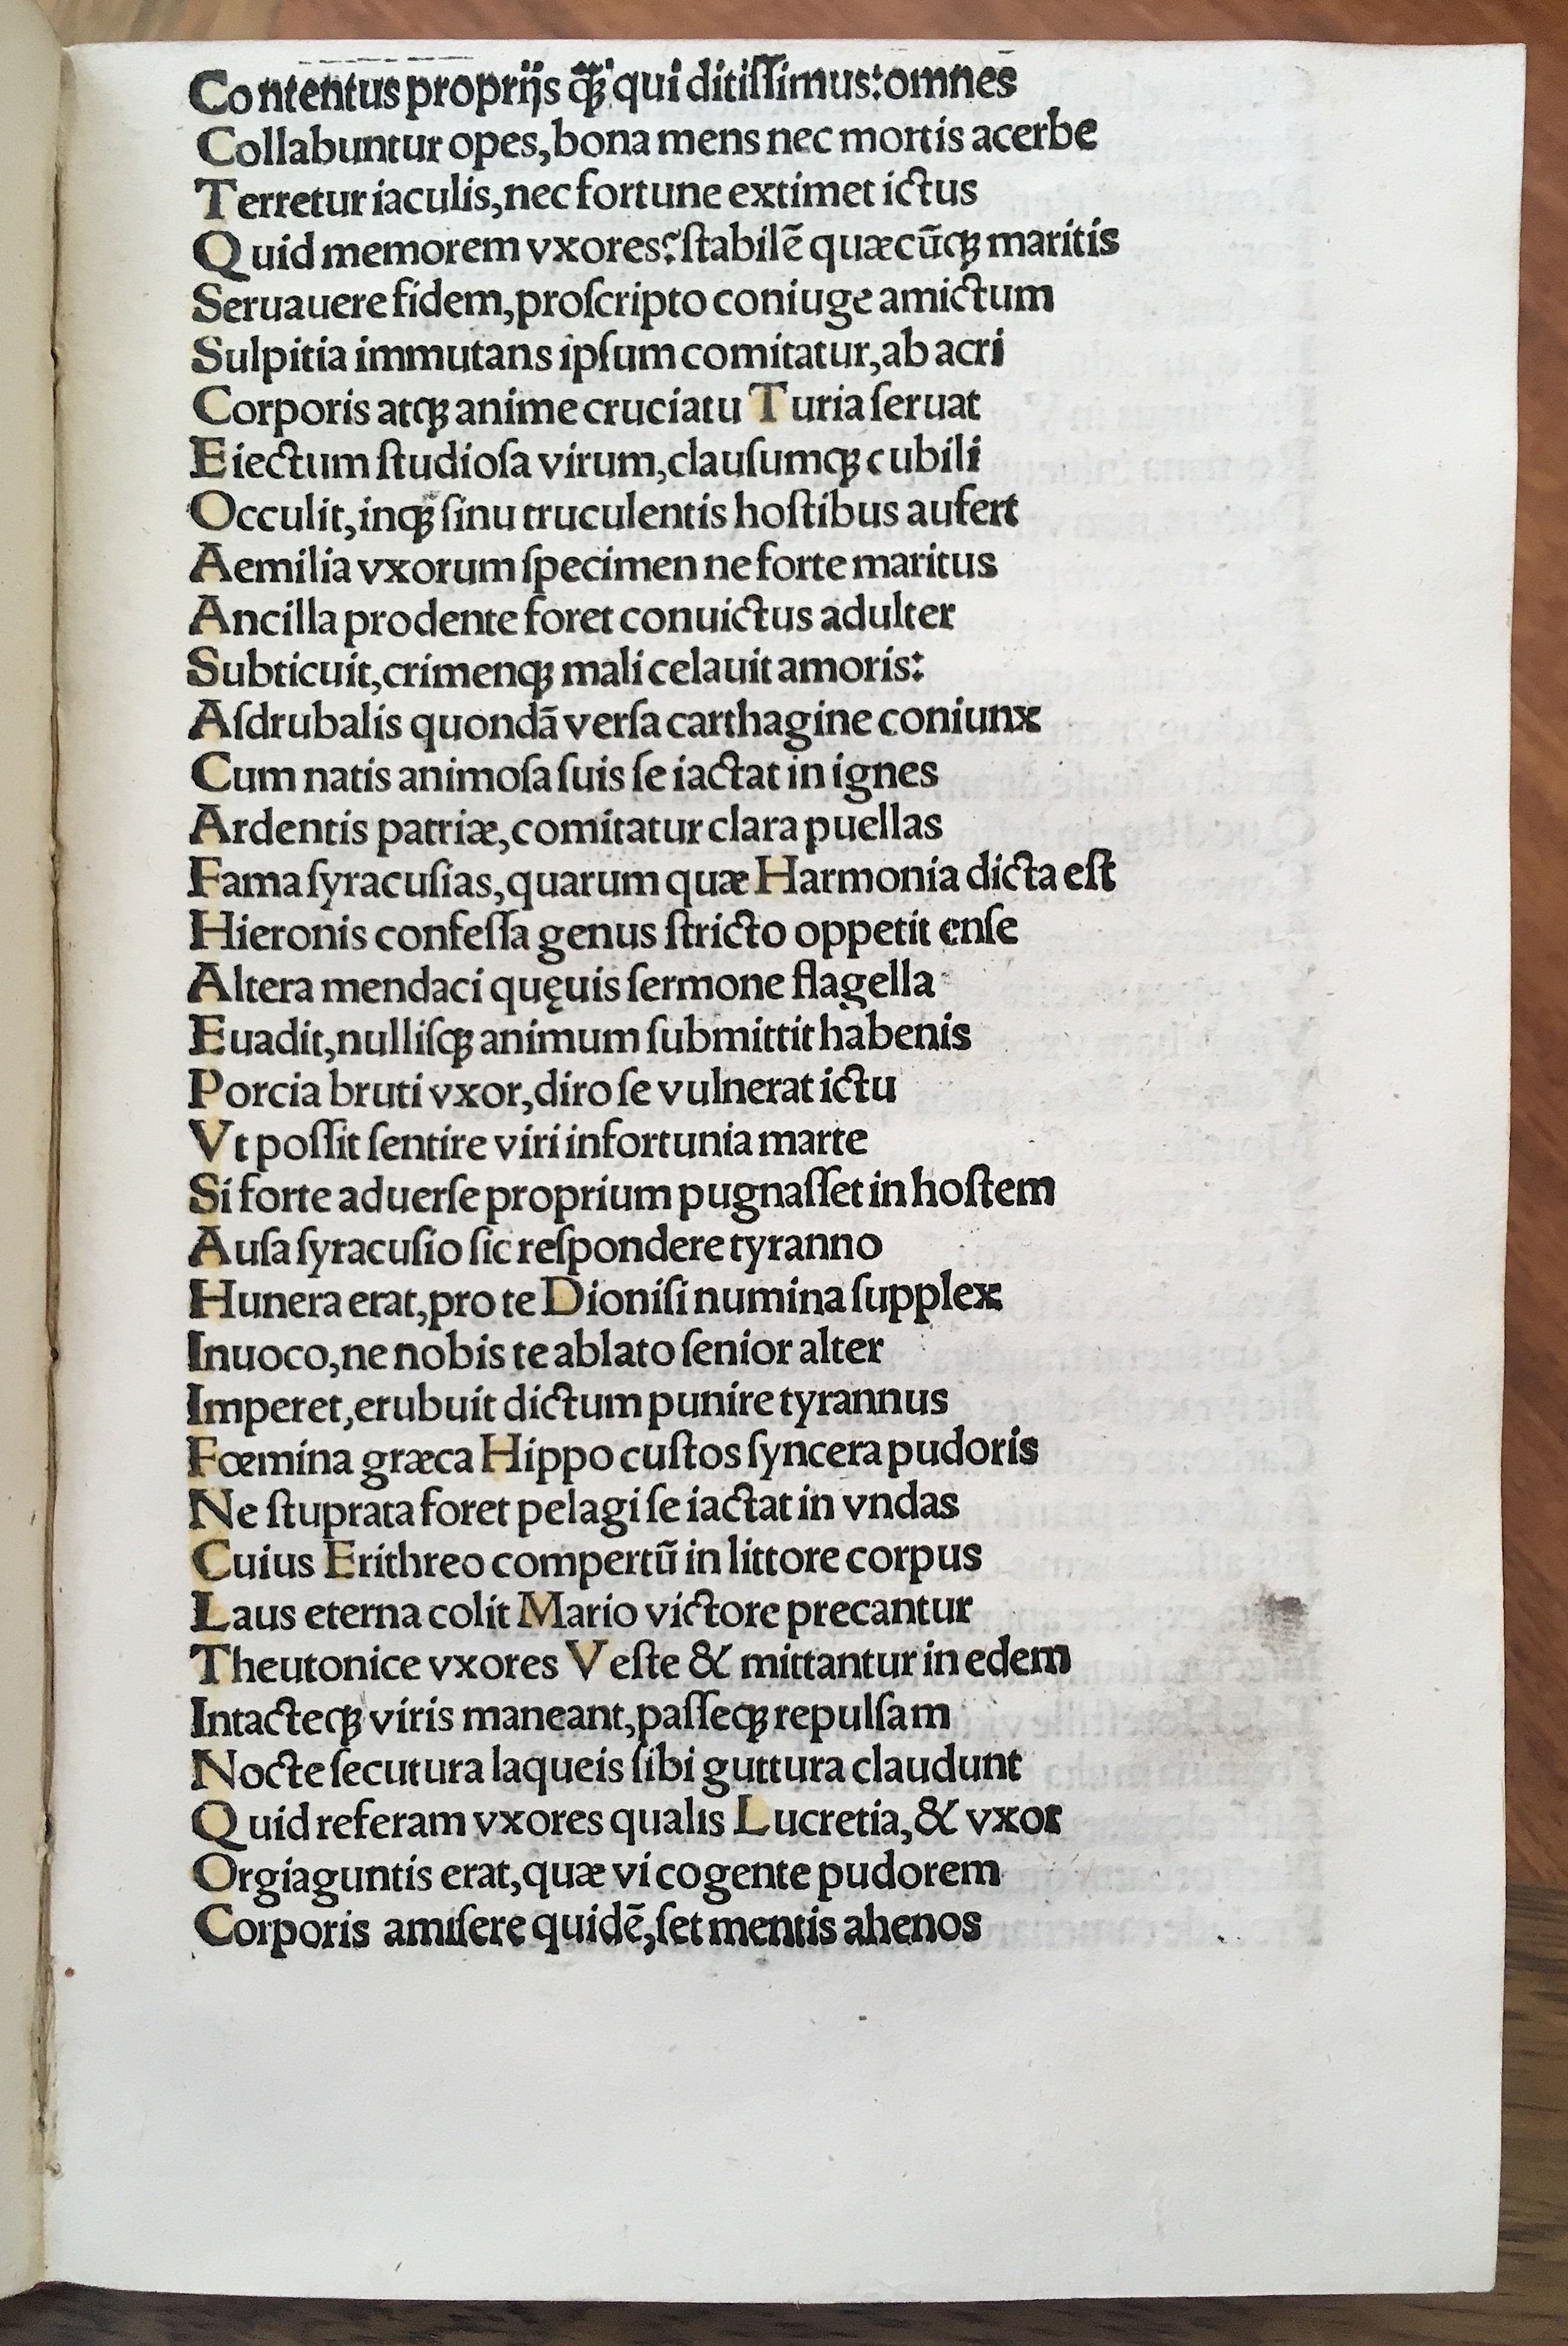 Contentus proprijs q̃ꝫ qui ditiſſimus: omnes
Collabuntur opes, bona mens nec mortis acerbe
Terretur iaculis, nec fortune extimet ictus
Quid memorem vxores: ſtabilẽ quæcũqꝫ maritis
Seruauere fidem, proſcripto coniuge amictum
Sulpitia immutans ipſum comitatur, ab acri
Corporis atqꝫ anime cruciatu Turia ſeruat
Eiectum ſtudioſa virum, clauſumqꝫ cubili
Occulit, inqꝫ ſinu truculentis hoſtibus aufert
Aemilia vxorum ſpecimen ne forte maritus
Ancilla prodente foret conuictus adulter
Subticuit, crimenqꝫ mali celauit amoris:
Aſdrubalis quondã verſa carthagine coniunx
Cum natis animoſa ſuis ſe iactat in ignes
Ardentis patriæ, comitatur clara puellas
Fama ſyracuſias, quarum quæ Harmonia dicta eſt
Hieronis confeſſa genus ſtricto oppetit enſe
Altera mendaci quęuis ſermone flagella
Euadit, nulliſqꝫ animum ſubmittit habenis
Porcia bruti vxor, diro ſe vulnerat ictu
Vt poſſit ſentire viri infortunia marte
Si forte aduerſe proprium pugnaſſet in hoſtem
Auſa ſyracuſio ſic reſpondere tyranno
Hunera erat, pro te Dioniſi numina ſupplex
Inuoco, ne nobis te ablato ſenior alter
Imperet, erubuit dictum punire tyrannus
Fœmina græca Hippo cuſtos ſyncera pudoris
Ne ſtuprata foret pelagi ſe iactat in vndas
Cuius Erithreo compertũ in littore corpus
Laus eterna colit Mario victore precantur
Theutonice vxores Veſte & mittantur in edem
Intacteqꝫ viris maneant, paſſeqꝫ repulſam
Nocte ſecutura laqueis ſibi guttura claudunt
Quid referam vxores qualis Lucretia, & vxor
Orgiaguntis erat, quæ vi cogente pudorem
Corporis amiſere quidẽ, ſet mentis ahenos